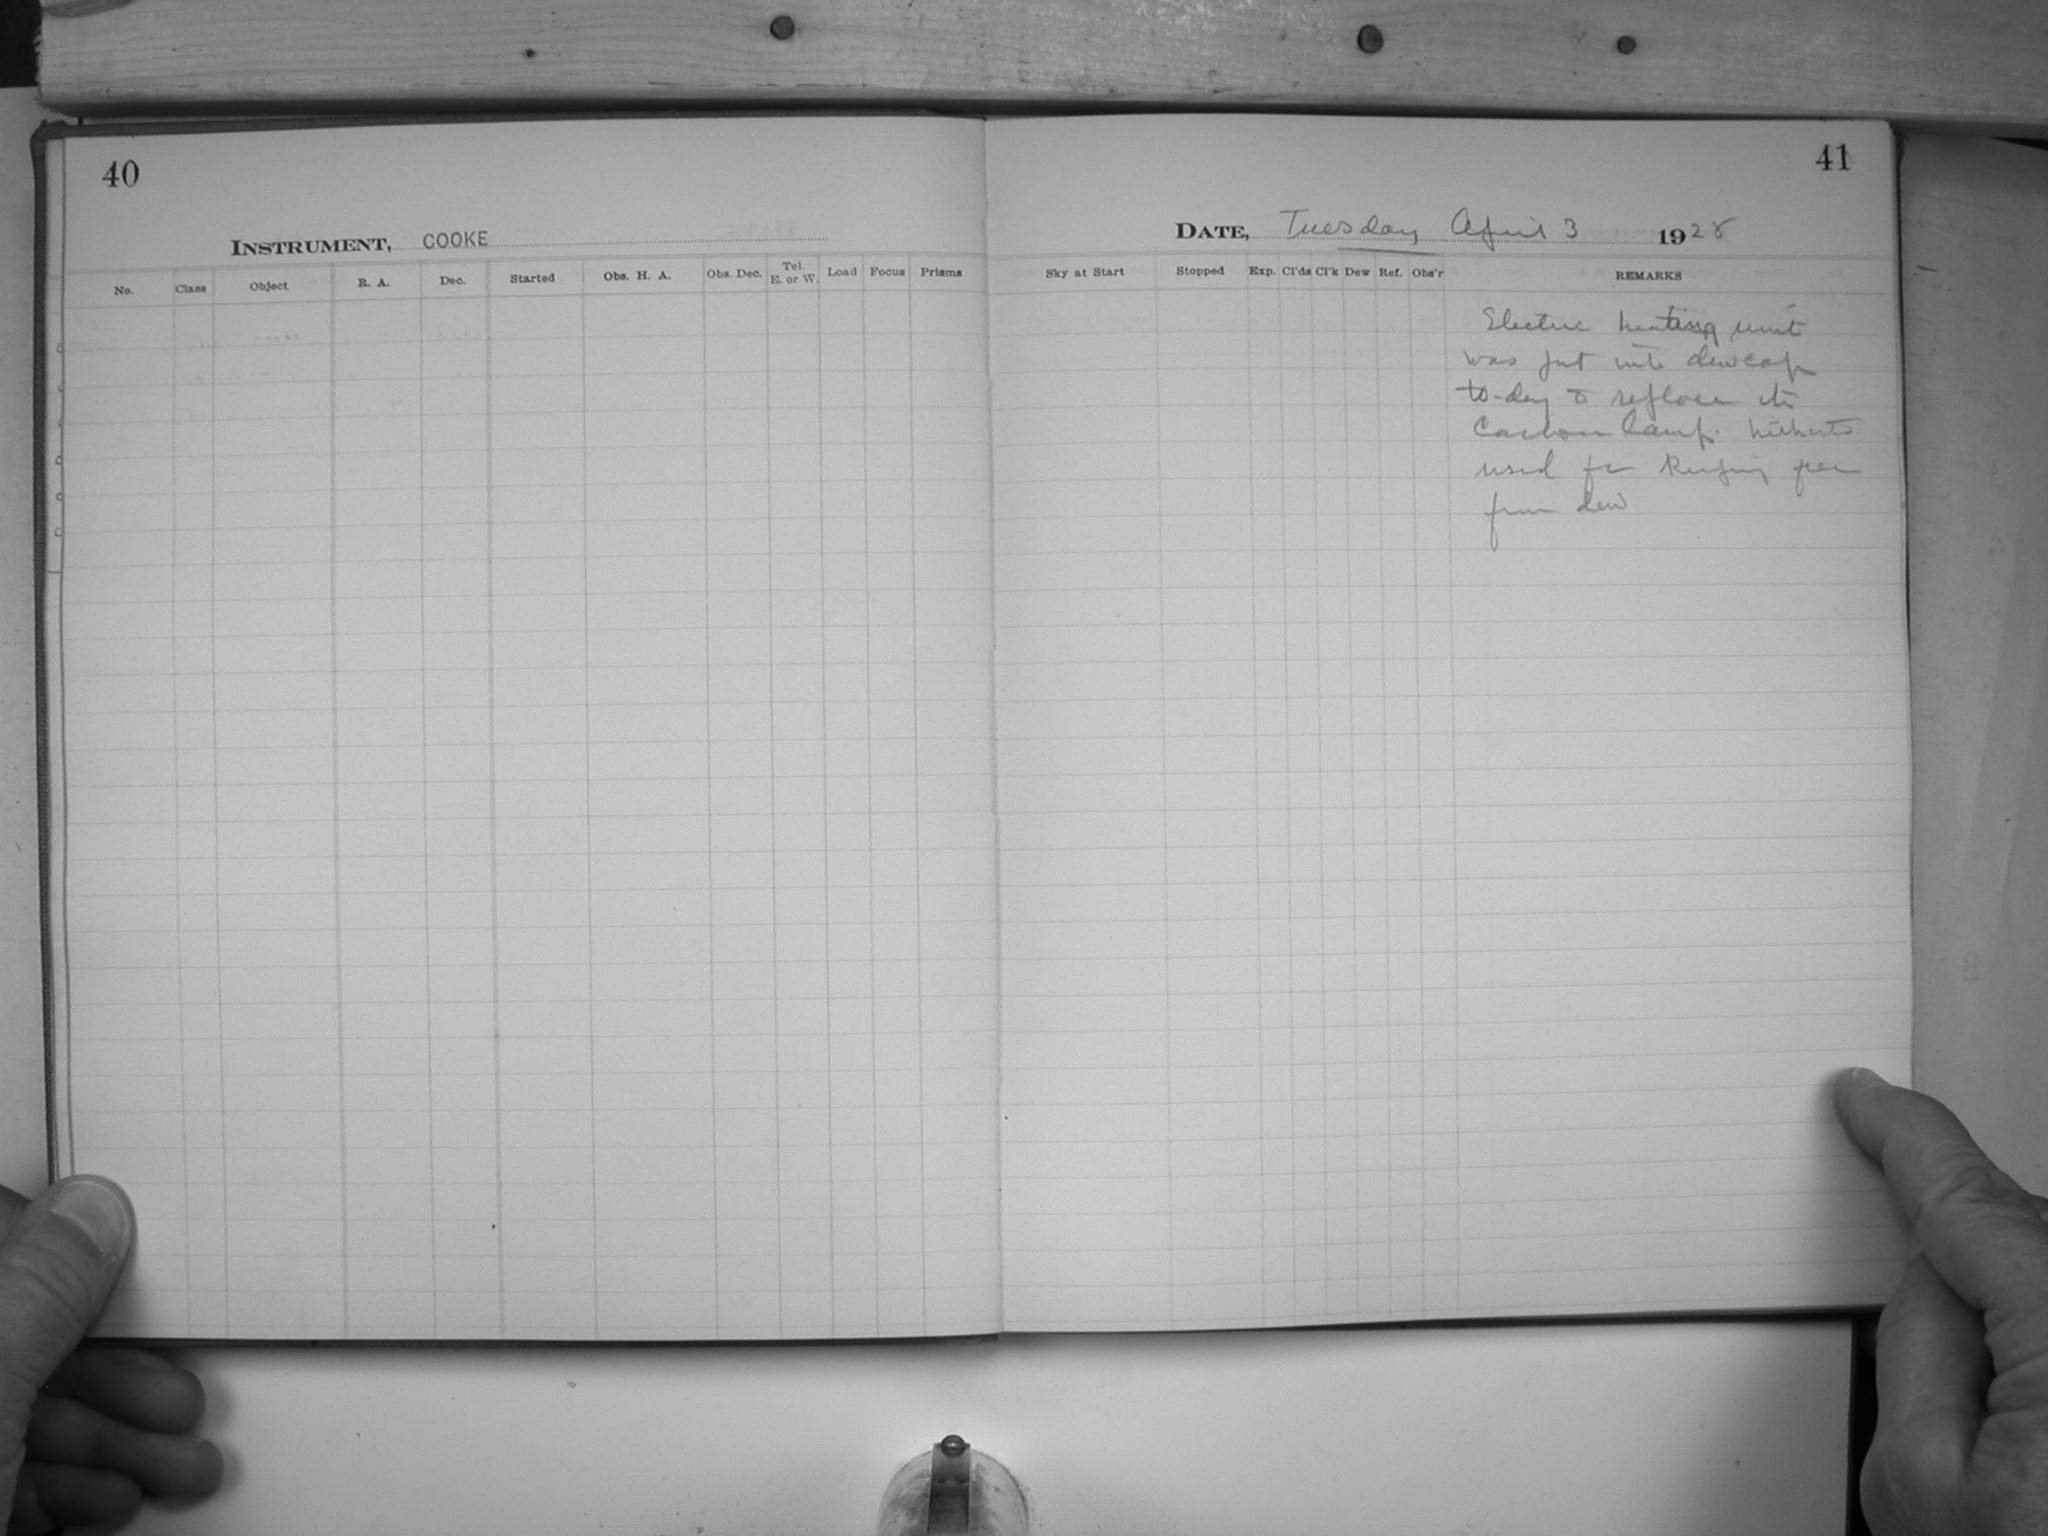 40
INSTRUMENT, COOKE
No. Class Object R. A. Dec. Started Obs. H. A. Obs. Dec. Tel. E. or W. Load Focus Prisms
41
DATE, Tuesday April 3 1928
Sky at Start Stopped Exp. Cl'ds Cl'k Dew Ref. Obs'r REMARKS
Electric heating unit
was put into dewcap
to-day to replace the
Carbon lamp hitherto
used for keeping free
from dew